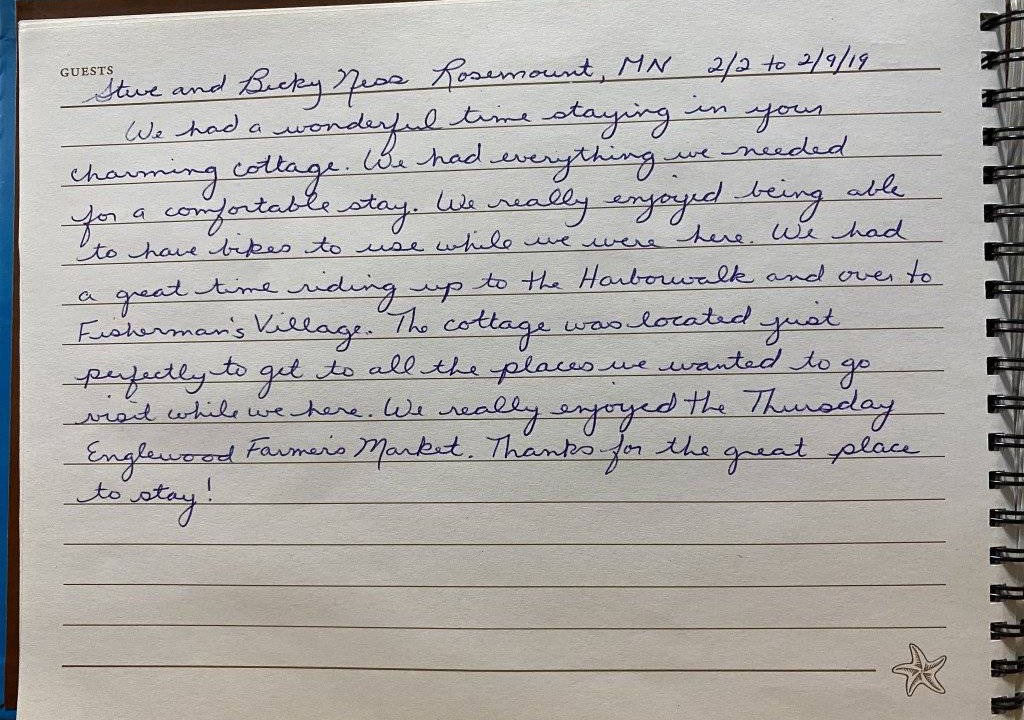 GUESTS
Steve and Becky Ness Rosemount, MN 2/2 to 2/9/19
We had a wonderful time staying in your
charming cottage. We had everything we needed
for a comfortable stay. We really enjoyed being able
to have bikes to use while we were here. We had
a great time riding up to the Harborwalk and over to
Fisherman's Village. The cottage was located just
perfectly to get to all the places we wanted to go
visit while we here. We really enjoyed the Thursday
Englewood Farmer's Market. Thanks for the great place
to stay!